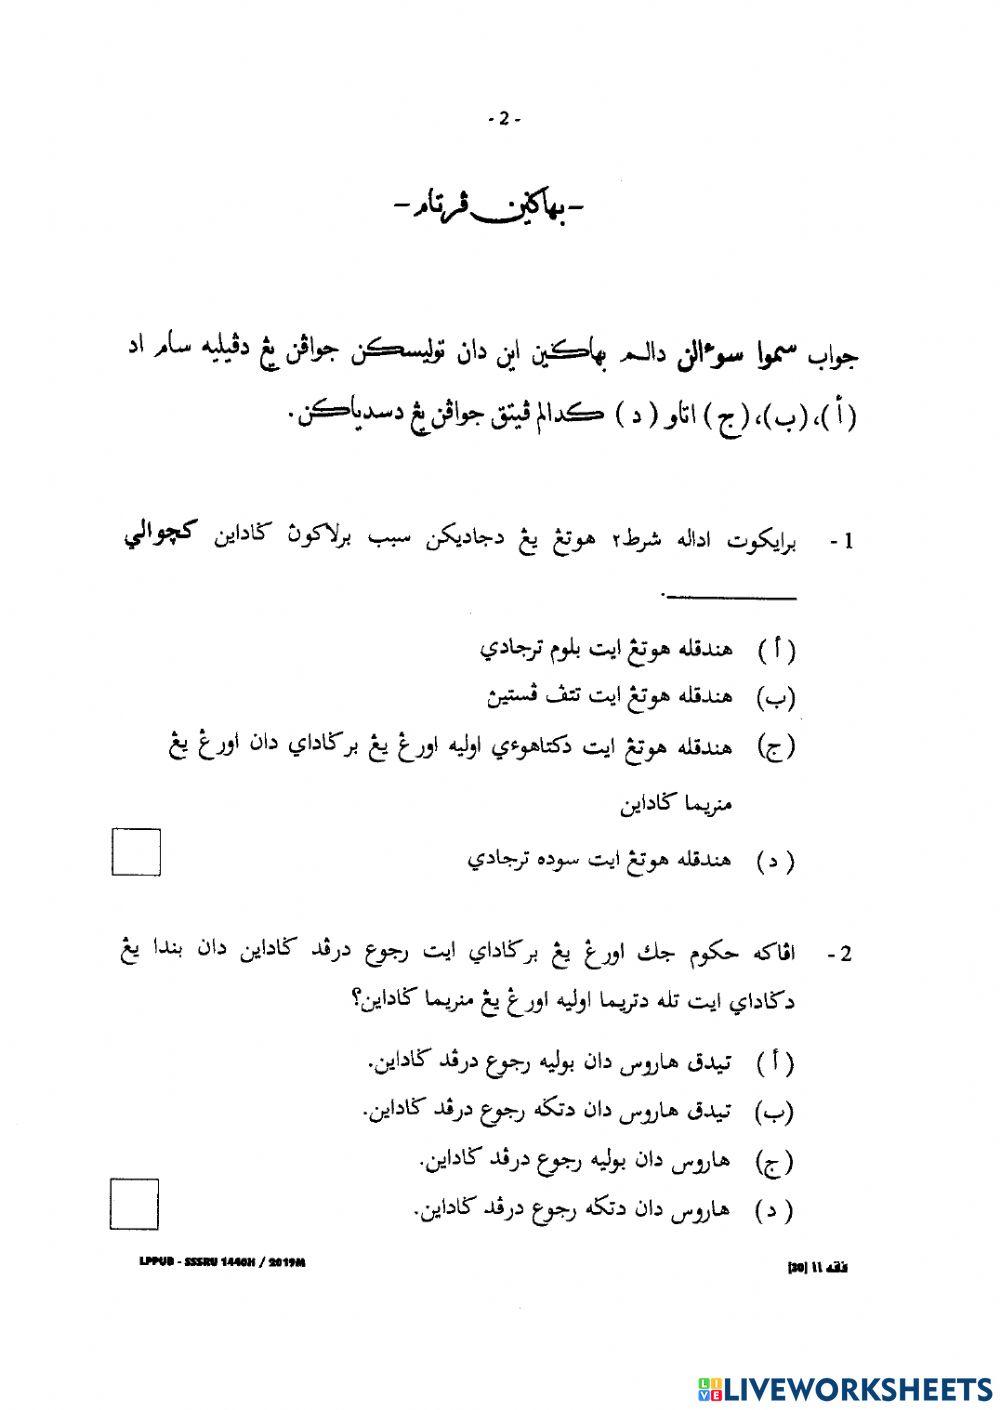 - 2 -
- بهاݢين ڤرتام -
جواب سموا سوءالن دالم بهاݢين اين دان توليسكن جواڤن يڠ دڤيليه سام اد
(أ)، (ب)، (ج) اتاو (د) كدالم ڤيتق جواڤن يڠ دسدياكن.
1 - برايكوت اداله شرط٢ هوتڠ يڠ دجاديكن سبب برلاكوڽ ݢاداين كچوالي
________.
(أ) هندقله هوتڠ ايت بلوم ترجادي
(ب) هندقله هوتڠ ايت تتڤ ڤستيڽ
(ج) هندقله هوتڠ ايت دكتاهوءي اوليه اورڠ يڠ برݢاداي دان اورڠ يڠ
منريما ݢاداين
(د) هندقله هوتڠ ايت سوده ترجادي
2 - اڤاكه حكوم جك اورڠ يڠ برݢاداي ايت رجوع درڤد ݢاداين دان بندا يڠ
دݢاداي ايت تله دتريما اوليه اورڠ يڠ منريما ݢاداين؟
(أ) تيدق هاروس دان بوليه رجوع درڤد ݢاداين.
(ب) تيدق هاروس دان دتݢه رجوع درڤد ݢاداين.
(ج) هاروس دان بوليه رجوع درڤد ݢاداين.
(د) هاروس دان دتݢه رجوع درڤد ݢاداين.
LPPUB - SSSRU 1440H / 2019M
فقه ١١ [30]
LIVEWORKSHEETS